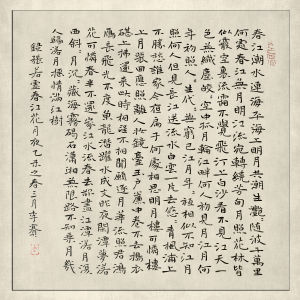 春江潮水連海平海上明月共潮生灩灩隨波千萬里
何處春江無月明江流宛轉繞芳甸月照花林皆
似霰空里流霜不覺飛汀上白沙看不見江天一
色無纖塵皎皎空中孤月輪江畔何人初見月江月何
年初照人人生代代無窮已江月年年祇相似不知江月
照何人但見長江送流水白雲一片去悠悠青楓浦上
不勝愁誰家今夜扁舟子何處相思明月樓可憐樓
上月裴回應照離人妝鏡臺玉戶簾中卷不去擣衣
碪上拂還來此時相望不相聞願逐月華流照君鴻
雁長飛光不度魚龍潛躍水成文昨夜閑潭夢落
花可憐春半不還家江水流春去欲盡江潭落月復
西斜斜月沉沉藏海霧碣石瀟湘無限路不知乘月幾
人歸落月搖情滿江樹
錄張若虛春江花月夜乙未之春三月李